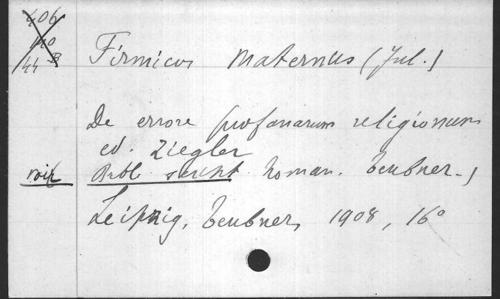 406
140
44 B
Firmicus Maternus (Jul.)
De errore profanarum religionum
ed. Ziegler
voir Bibl. script. Roman. Teubner.)
Leipzig, Teubner, 1908, 16°